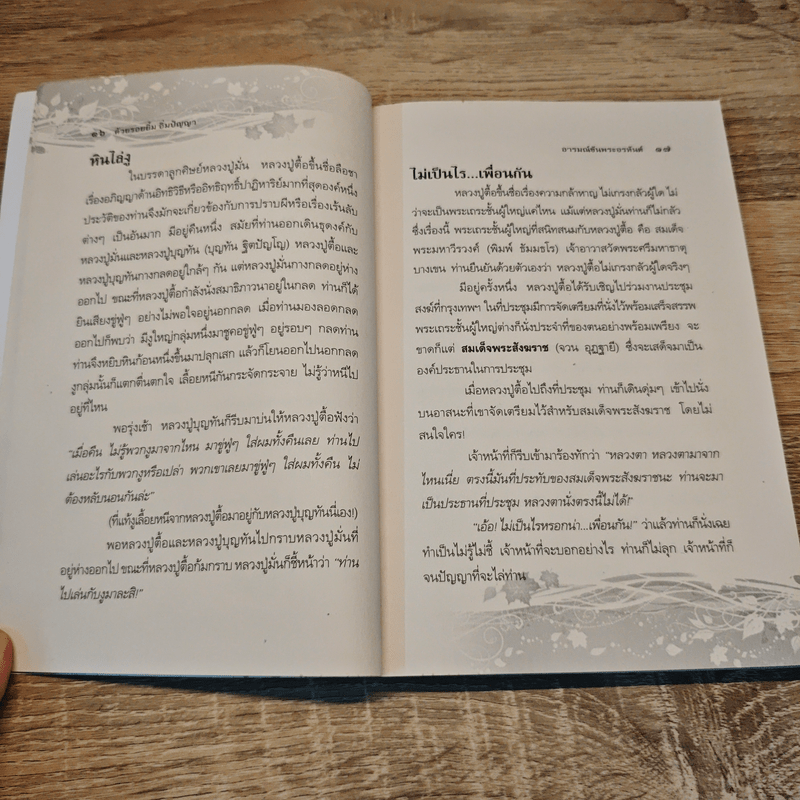 ๑๖ ด้วยรอยยิ้ม อิ่มปัญญา
หินไล่งู
ในบรรดาลูกศิษย์หลวงปู่มั่น หลวงปู่ตื้อขึ้นชื่อลือชา
เรื่องอภิญญาด้านอิทธิวิธีหรืออิทธิฤทธิ์ปาฏิหาริย์มากที่สุดองค์หนึ่ง
ประวัติของท่านจึงมักจะเกี่ยวข้องกับการปราบผีหรือเรื่องเร้นลับ
ต่างๆ เป็นอันมาก มีอยู่คืนหนึ่ง สมัยที่ท่านออกเดินธุดงค์กับ
หลวงปู่มั่นและหลวงปู่บุญทัน (บุญทัน ฐิตปัญโญ) หลวงปู่ตื้อและ
หลวงปู่บุญทันกางกลดอยู่ใกล้ๆ กัน แต่หลวงปู่มั่นกางกลดอยู่ห่าง
ออกไป ขณะที่หลวงปู่ตื้อกำลังนั่งสมาธิภาวนาอยู่ในกลด ท่านก็ได้
ยินเสียงขู่ฟู่ๆ อย่างไม่พอใจอยู่นอกกลด เมื่อท่านมองลอดกลด
ออกไปก็พบว่า มีงูใหญ่กลุ่มหนึ่งมาชูคอขู่ฟู่ๆ อยู่รอบๆ กลดท่าน
ท่านจึงหยิบหินก้อนหนึ่งขึ้นมาปลุกเสก แล้วก็โยนออกไปนอกกลด
งูกลุ่มนั้นก็แตกตื่นตกใจ เลื้อยหนีกันกระจัดกระจาย ไม่รู้ว่าหนีไป
อยู่ที่ไหน
พอรุ่งเช้า หลวงปู่บุญทันก็รีบมาบ่นให้หลวงปู่ตื้อฟังว่า
"เมื่อคืน ไม่รู้พวกงูมาจากไหน มาขู่ฟู่ๆ ใส่ผมทั้งคืนเลย ท่านไป
เล่นอะไรกับพวกงูหรือเปล่า พวกเขาเลยมาขู่ฟู่ๆ ใส่ผมทั้งคืน ไม่
ต้องหลับนอนกันล่ะ"
(ที่แท้งูเลื้อยหนีจากหลวงปู่ตื้อมาอยู่กับหลวงปู่บุญทันนี่เอง!)
พอหลวงปู่ตื้อและหลวงปู่บุญทันไปกราบหลวงปู่มั่นที่
อยู่ห่างออกไป ขณะที่หลวงปู่ตื้อก้มกราบ หลวงปู่มั่นก็ชี้หน้าว่า "ท่าน
ไปเล่นกับงูมาละสิ!"
อารมณ์ขันพระอรหันต์ ๑๗
ไม่เป็นไร...เพื่อนกัน
หลวงปู่ตื้อขึ้นชื่อเรื่องความกล้าหาญ ไม่เกรงกลัวผู้ใด ไม่
ว่าจะเป็นพระเถระชั้นผู้ใหญ่แค่ไหน แม้แต่หลวงปู่มั่นท่านก็ไม่กลัว
ซึ่งเรื่องนี้ พระเถระชั้นผู้ใหญ่ที่สนิทสนมกับหลวงปู่ตื้อ คือ สมเด็จ
พระมหาวีรวงศ์ (พิมพ์ ธัมมธโร) เจ้าอาวาสวัดพระศรีมหาธาตุ
บางเขน ท่านยืนยันด้วยตัวเองว่า หลวงปู่ตื้อไม่เกรงกลัวผู้ใดจริงๆ
มีอยู่ครั้งหนึ่ง หลวงปู่ตื้อได้รับเชิญไปร่วมงานประชุม
สงฆ์ที่กรุงเทพฯ ในที่ประชุมมีการจัดเตรียมที่นั่งไว้พร้อมเสร็จสรรพ
พระเถระชั้นผู้ใหญ่ต่างก็นั่งประจำที่ของตนอย่างพร้อมเพรียง จะ
ขาดก็แต่ สมเด็จพระสังฆราช (จวน อุฏฐายี) ซึ่งจะเสด็จมาเป็น
องค์ประธานในการประชุม
เมื่อหลวงปู่ตื้อไปถึงที่ประชุม ท่านก็เดินดุ่มๆ เข้าไปนั่ง
บนอาสนะที่เขาจัดเตรียมไว้สำหรับสมเด็จพระสังฆราช โดยไม่
สนใจใคร!
เจ้าหน้าที่ก็รีบเข้ามาร้องทักว่า "หลวงตา หลวงตามาจาก
ไหนเนี่ย ตรงนี้มันที่ประทับของสมเด็จพระสังฆราชนะ ท่านจะมา
เป็นประธานที่ประชุม หลวงตานั่งตรงนี้ไม่ได้!"
"เอ้อ! ไม่เป็นไรหรอกน่า...เพื่อนกัน!" ว่าแล้วท่านก็นั่งเฉย
ทำเป็นไม่รู้ไม่ชี้ เจ้าหน้าที่จะบอกอย่างไร ท่านก็ไม่ลุก เจ้าหน้าที่ก็
จนปัญญาที่จะไล่ท่าน